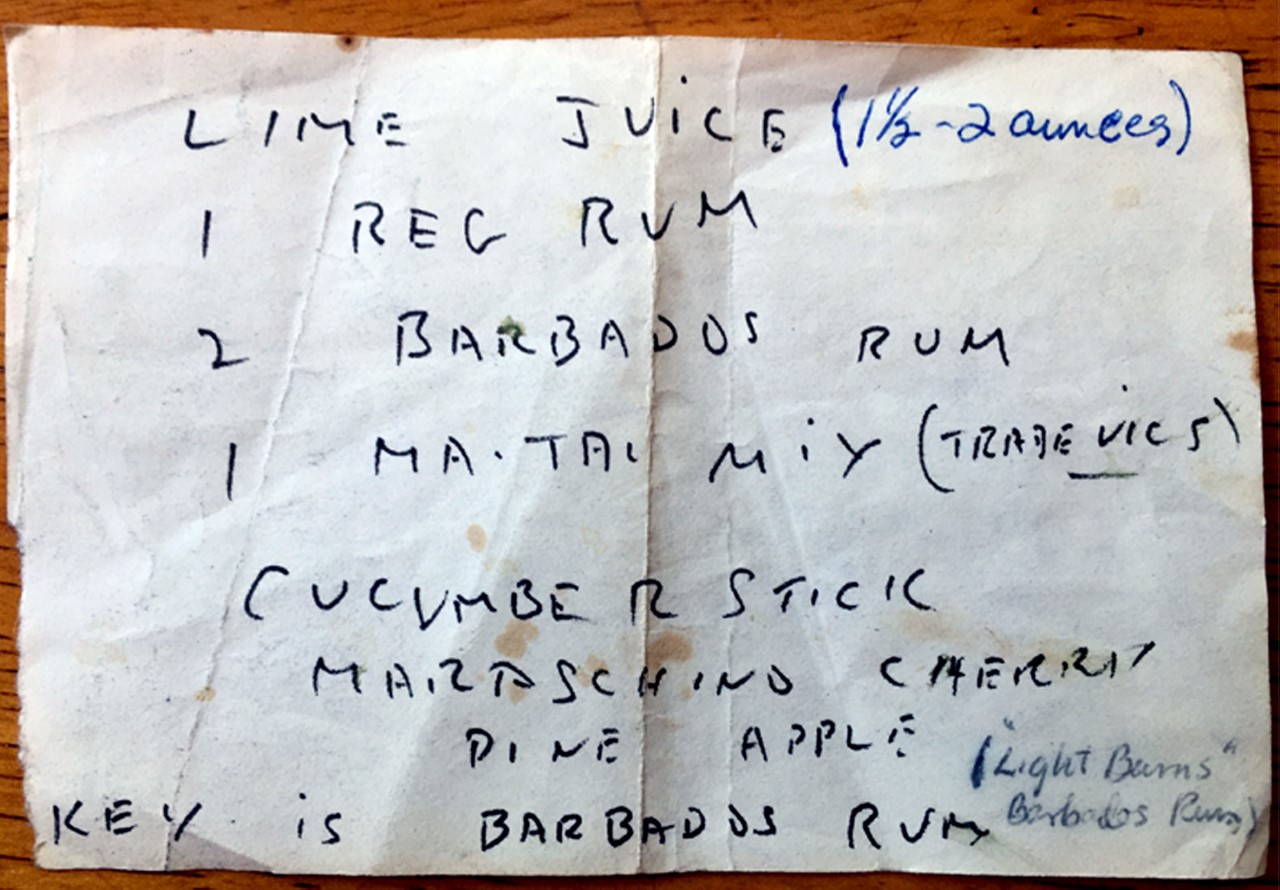 LIME JUICE (1½ - 2 ounces)
1 REG RUM
2 BARBADOS RUM
1 MA·TAI MIX (TRADE VICS)
CUCUMBER STICK
MARASCHINO CHERRY
PINE APPLE
("Light Barns"
KEY is BARBADOS RUM
Barbados Rum)